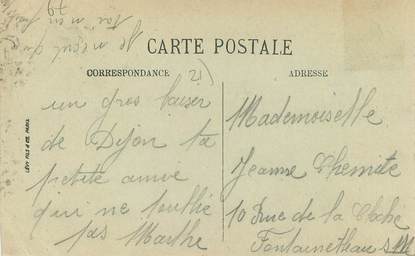 CARTE POSTALE
CORRESPONDANCE
21)
ADRESSE
un gros baiser
de Dijon ta
petite amie
qui ne t'oublie
pas Marthe
Mademoiselle
Jeanne
10 Rue de la Cloche
Fontainebleau S/M
LÉVY FILS & Cie, PARIS